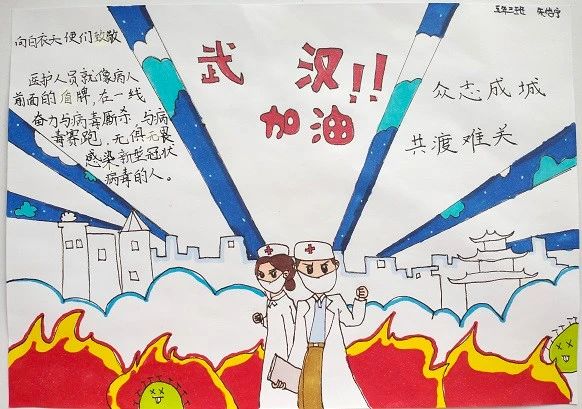 五年三班
向白衣天使们致敬
医护人员就像病人
前面的盾牌,在一线
奋力与病毒厮杀,与病
毒赛跑,无惧无畏
感染新型冠状
病毒的人。
武 汉!!
加油
众志成城
共渡难关